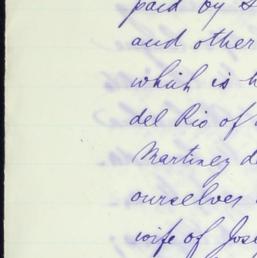 paid by
and other
which is
del Rio of
Martinez d
ourselves
wife of Jos